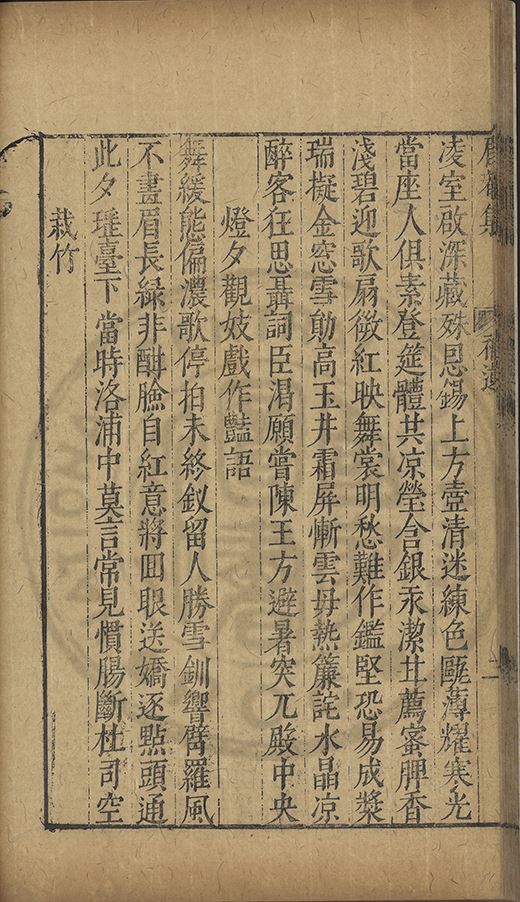 集 補遺 二
凌室啟深藏殊恩錫上方壺清迷練色甌薄耀寒光
當座人俱素登筵體共凉瑩含銀汞潔甘薦蜜脾香
淺碧迎歌扇微紅映舞裳明愁難作鑑堅恐易成漿
瑞擬金窓雪勛高玉井霜屏慚雲母熱簾詫水晶凉
醉客狂思聶詞臣渴願嘗陳王方避暑突兀殿中央
燈夕觀妓戲作豔語
舞緩能偏濃歌停拍未終釵留人勝雪釧響臂羅風
不畫眉長綠非酣臉自紅意將囬眼送嬌逐點頭通
此夕瑶臺下當時洛浦中莫言常見慣腸斷杜司空
栽竹